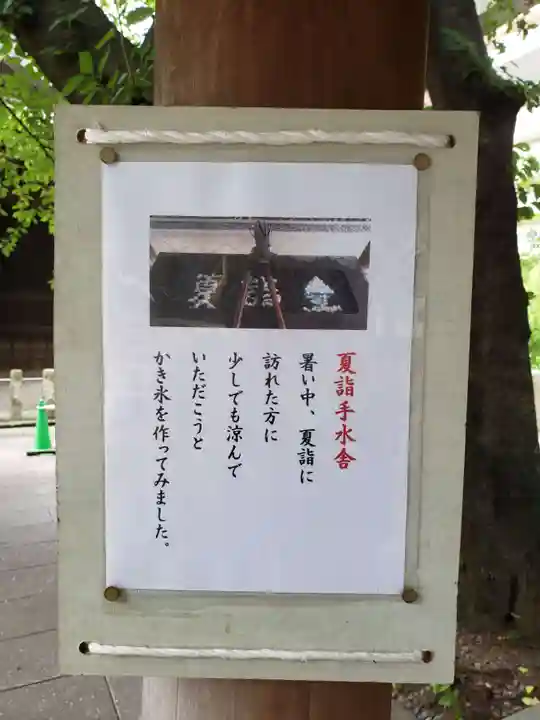 夏詣
夏詣手水舎
暑い中、夏詣に
訪れた方に
少しでも涼んで
いただこうと
かき氷を作ってみました。